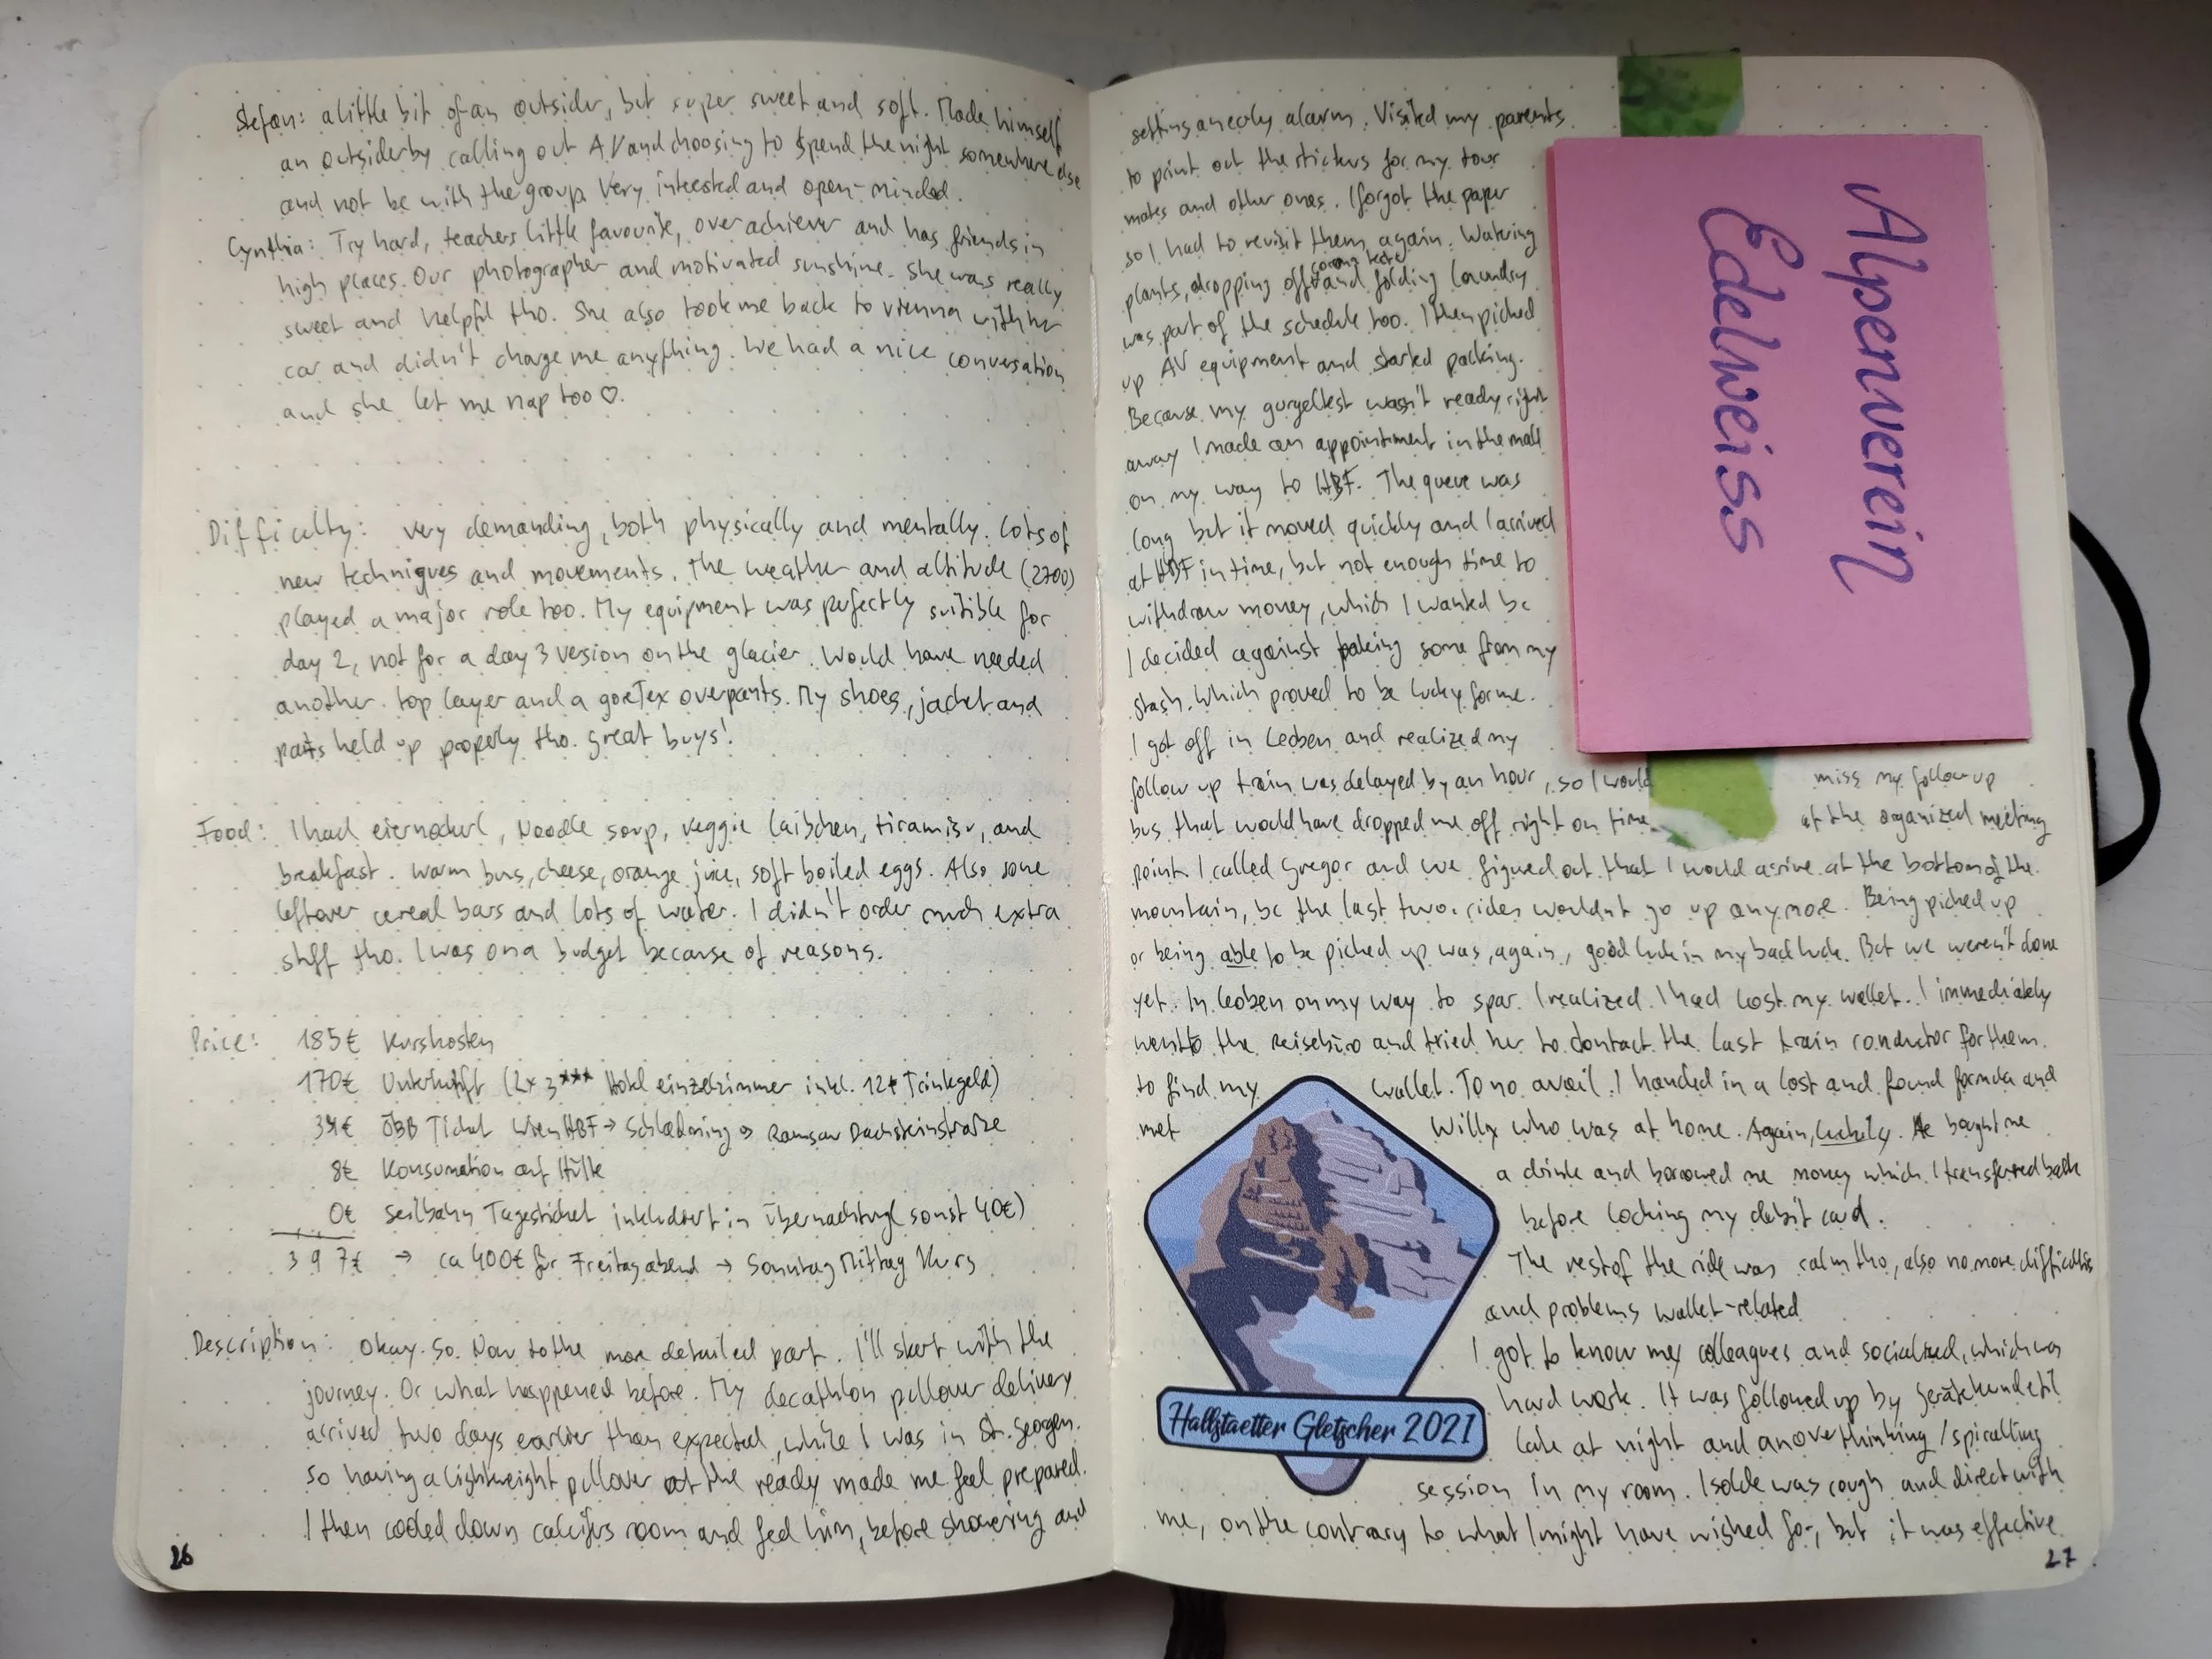 Stefan: a little bit of an outsider, but super sweet and soft. Made himself
an outsider by calling out AV and choosing to spend the night somewhere else
and not be with the group. Very interested and open-minded.
Cynthia: Try hard, teachers little favourite, overachiever and has friends in
high places. Our photographer and motivated sunshine. She was really
sweet and helpful tho. She also took me back to vienna with her
car and didn't charge me anything. We had a nice conversation
and she let me nap too ♡.
Difficulty: very demanding, both physically and mentally. Lots of
new techniques and movements. The weather and altitude (2700)
played a major role too. My equipment was perfectly suitible for
day 2, not for a day 3 version on the glacier. Would have needed
another top layer and a goreTex overpants. My shoes, jacket and
pants held up properly tho. great buys!
Food: I had eiernockerl, Noodle soup, veggie laibchen, tiramisu, and
breakfast. warm buns, cheese, orange juice, soft boiled eggs. Also some
leftover cereal bars and lots of water. I didn't order much extra
stuff tho. I was on a budget because of reasons.
Price: 185€ Kurskosten
170€ Unterkunft (2x 3*** Hotel einzelzimmer inkl. 12€ Trinkgeld)
34€ ÖBB Ticket Wien HBF → Schladming → Ramsau Dachsteinstraße
8€ Konsumation auf Hütte
0€ Seilbahn Tagesticket inkludiert in Übernachtung (sonst 40€)
397€ → ca 400€ für Freitag abend → Sonntag Mittag Kurs
Description: Okay. So. Now to the more detailed part. I'll start with the
journey. Or what happened before. My decathlon pullover delivery
arrived two days earlier than expected, while I was in St. Georgen.
So having a lightweight pullover at the ready made me feel prepared.
I then cooled down calcifus room and fed him, before showering and
26
setting an early alarm. Visited my parents
to print out the stickers for my tour
mates and other ones. I forgot the paper
so I had to revisit them again. Watering
corona tests
plants, dropping off and folding laundry
was part of the schedule too. I then picked
up AV equipment and started packing.
Because my gurgeltest wasn't ready right
away I made an appointment in the mall
on my way to HBF. The queue was
long but it moved quickly and I arrived
at HBF in time, but not enough time to
withdraw money, which I wanted bc
I decided against taking some from my
stash. Which proved to be lucky for me.
I got off in Leoben and realized my
follow up train was delayed by an hour, so I would miss my follow up
bus that would have dropped me off right on time at the organized meeting
point. I called Gregor and we figured out that I would arrive at the bottom of the
mountain, bc the last two rides wouldnt go up anymore. Being picked up
or being able to be picked up was, again, good luck in my bad luck. But we weren't done
yet. In Leoben on my way to spar I realized I had lost my wallet. I immediately
went to the Reisebüro and tried her to contact the last train conductor for them
to find my wallet. To no avail. I handed in a lost and found formula and
met Willy who was at home. Again, luckily. He bought me
a drink and borrowed me money which I transferred back
before locking my debit card.
The rest of the ride was calm tho, also no more difficulties
and problems wallet-related
I got to know my colleagues and socialized, which was
hard work. It was followed up by Gerätekunde til
late at night and an overthinking / spiralling
session in my room. Isolde was rough and direct with
me, on the contrary to what I might have wished for, but it was effective
27
Alpenverein
Edelweiss
Hallstaetter Gletscher 2021